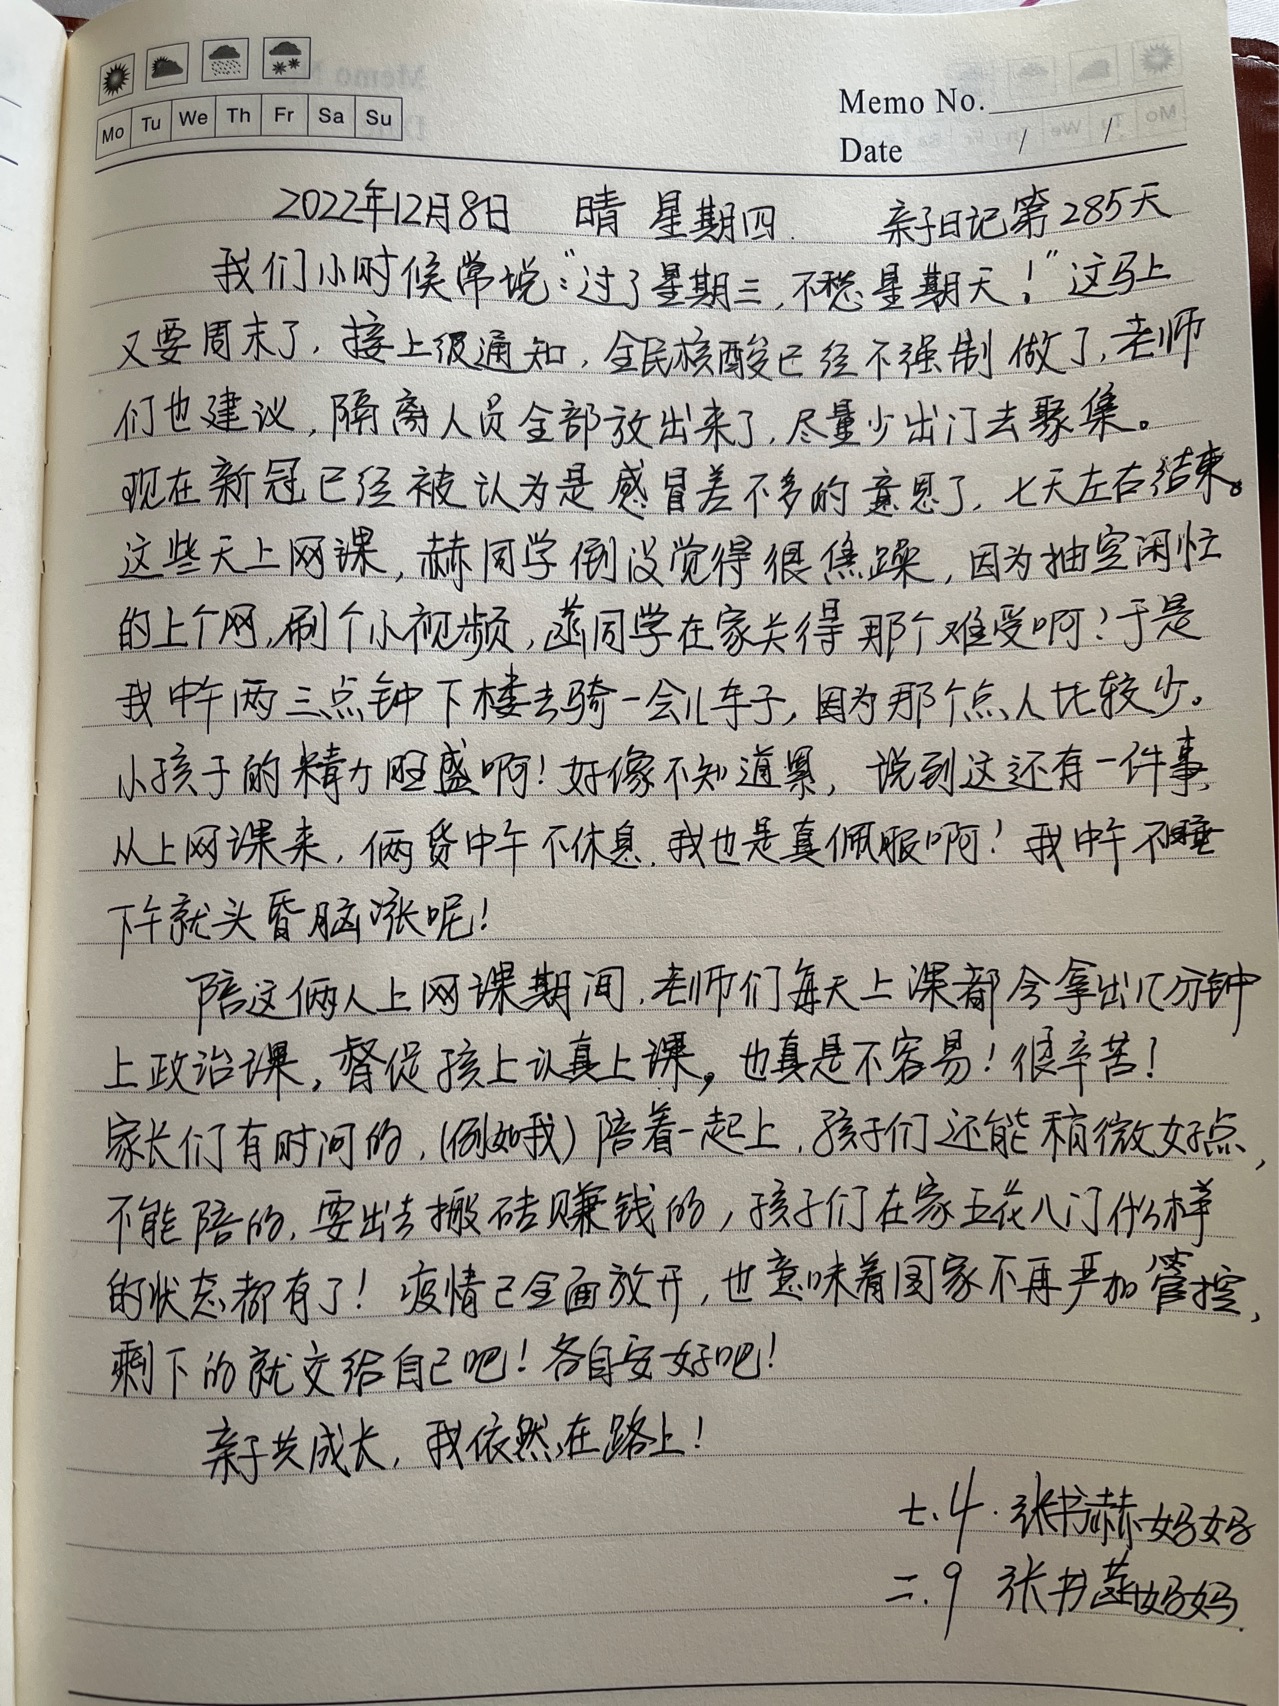 Mo Tu We Th Fr Sa Su
Memo No.
Date / /
2022年12月8日 晴 星期四. 亲子日记第285天
我们小时候常说:"过了星期三,不愁星期天!"这马上
又要周末了,接上级通知,全民核酸已经不强制做了,老师
们也建议,隔离人员全部放出来了,尽量少出门去聚集。
现在新冠已经被认为是感冒差不多的意思了,七天左右结束。
这些天上网课,赫同学倒没觉得很焦躁,因为抽空闲忙
的上个网,刷个小视频,菡同学在家关得那个难受啊!于是
我中午两三点钟下楼去骑一会儿车子,因为那个点人比较少。
小孩子的精力旺盛啊!好像不知道累,说到这还有一件事,
从上网课来,俩货中午不休息,我也是真佩服啊!我中午不睡
下午就头昏脑涨呢!
陪这俩人上网课期间,老师们每天上课都今拿出几分钟
上政治课,督促孩上认真上课,也真是不容易!很辛苦!
家长们有时间的,(例如我)陪着一起上,孩子们还能稍微好点,
不能陪的,要出去搬砖赚钱的,孩子们在家五花八门什么样
的状态都有了!疫情已全面放开,也意味着国家不再严加管控,
剩下的就交给自己吧!各自安好吧!
亲子共成长,我依然在路上!
七.4.张书赫妈妈
二.9 张书菡妈妈.